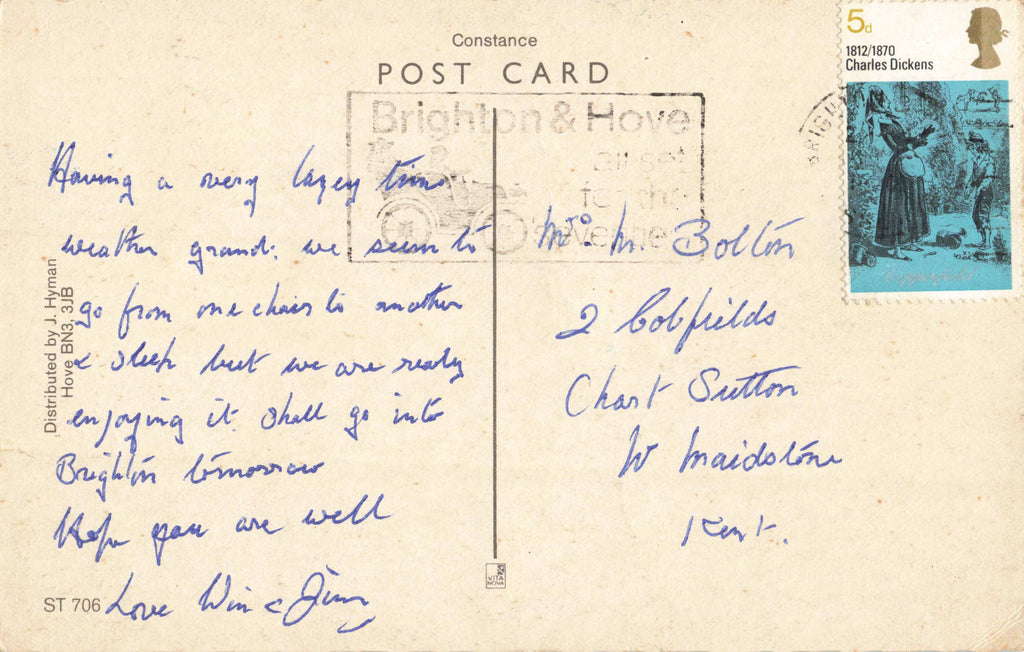 Constance
POST CARD
5d
1812/1870
Charles Dickens
Brighton & Hove
all set
for the
Having a very lazey time
weather grand: we seem to
go from one chair to another
& sleep but we are really
enjoying it. Shall go into
Brighton tomorrow
Hope you are well
Love Win & Jim
Mrs. M. Bolton
2 Cobfields
Chart Sutton
Maidstone
Kent.
Distributed by J. Hyman
Hove BN3, 3JB
VITA
NOVA
ST 706